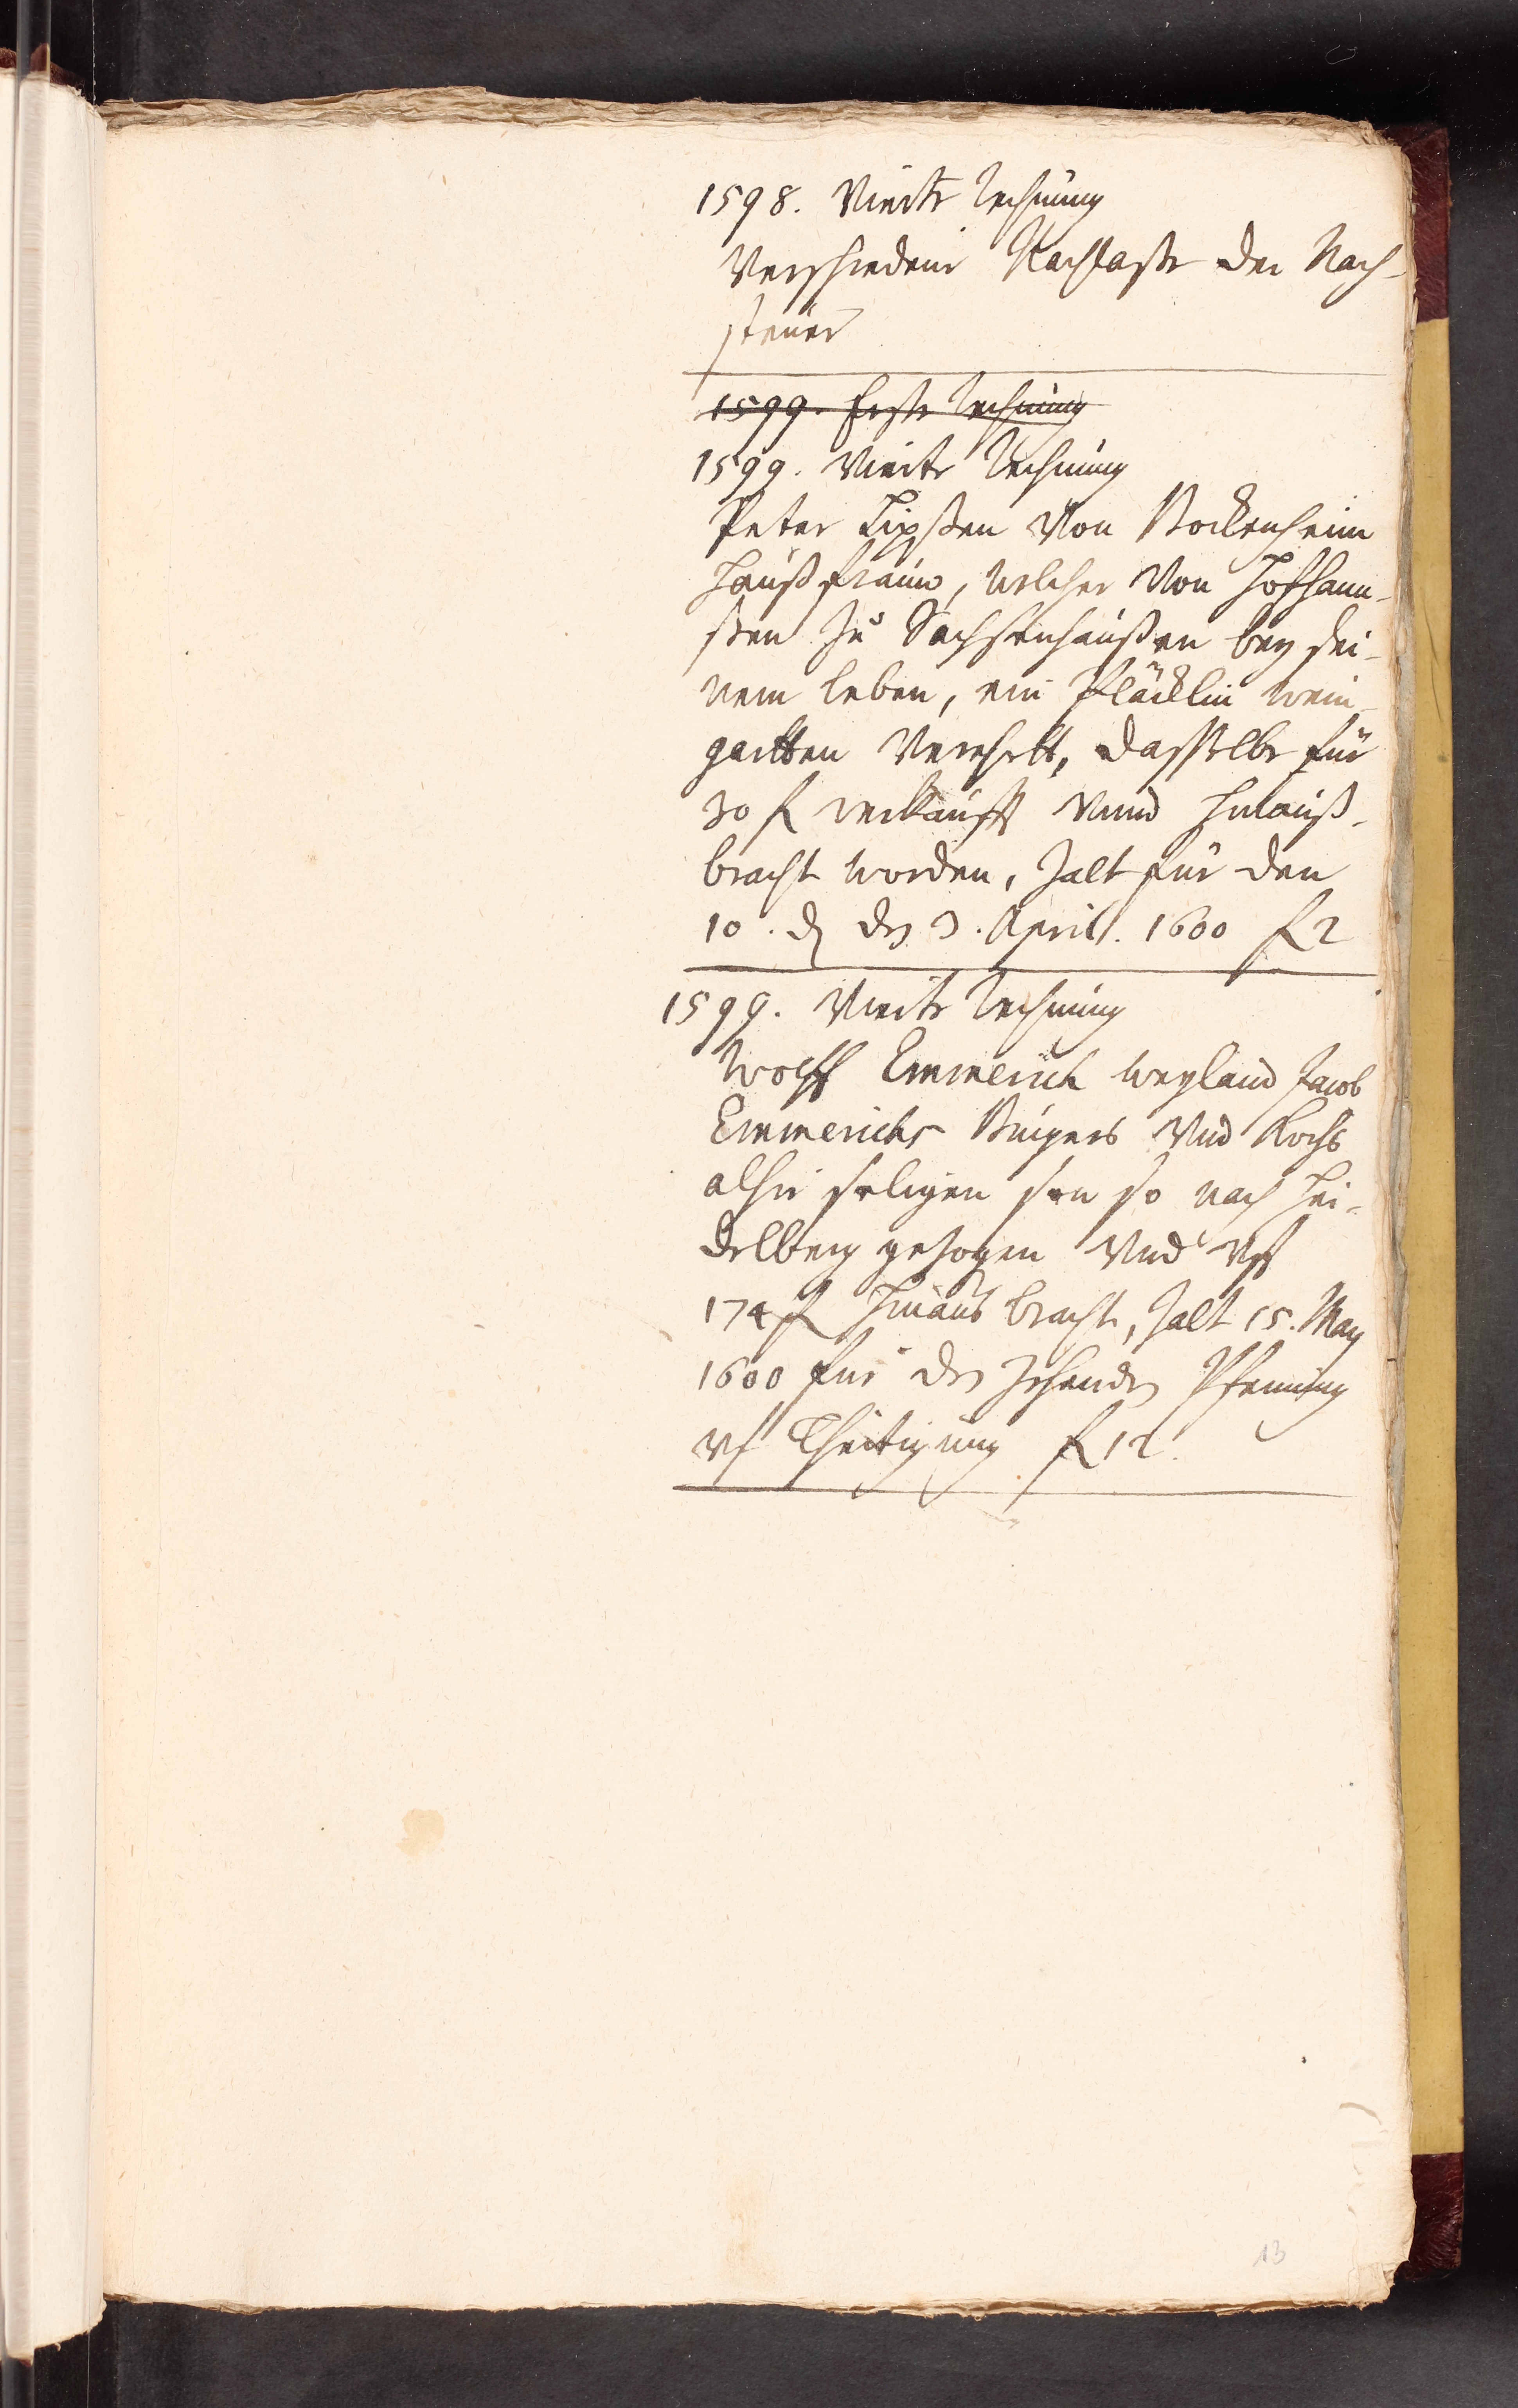 1598. Vierte Rechnung
Verschiedene Nachlaße der Nach-
steuer
1599. Erste Rechnung
1599. Vierte Rechnung
Peter Lipßen von Bockenheim
Haußfrauw, welcher von Hofhann-
ßen zu Sachsenhaußen bey sei-
nem leben, ein Flecklin wein-
gartten verehrtt, dasselbe für
30 fl verkaufft vnnd hinauß-
bracht worden, Zalt für den
10. d den 3. April. 1600 fl 2
1599. Vierte Rechnung
Wolff Emmerich weyland Jacob
Emmerichs Burgers vnd Kochs
alhie seligen son so nach Hei-
delberg gezogen vnd vff
174 fl hinaus bracht, Zalt 15. May
1600 für den zehenden Pfenning
vf Theitigung fl 12.
13